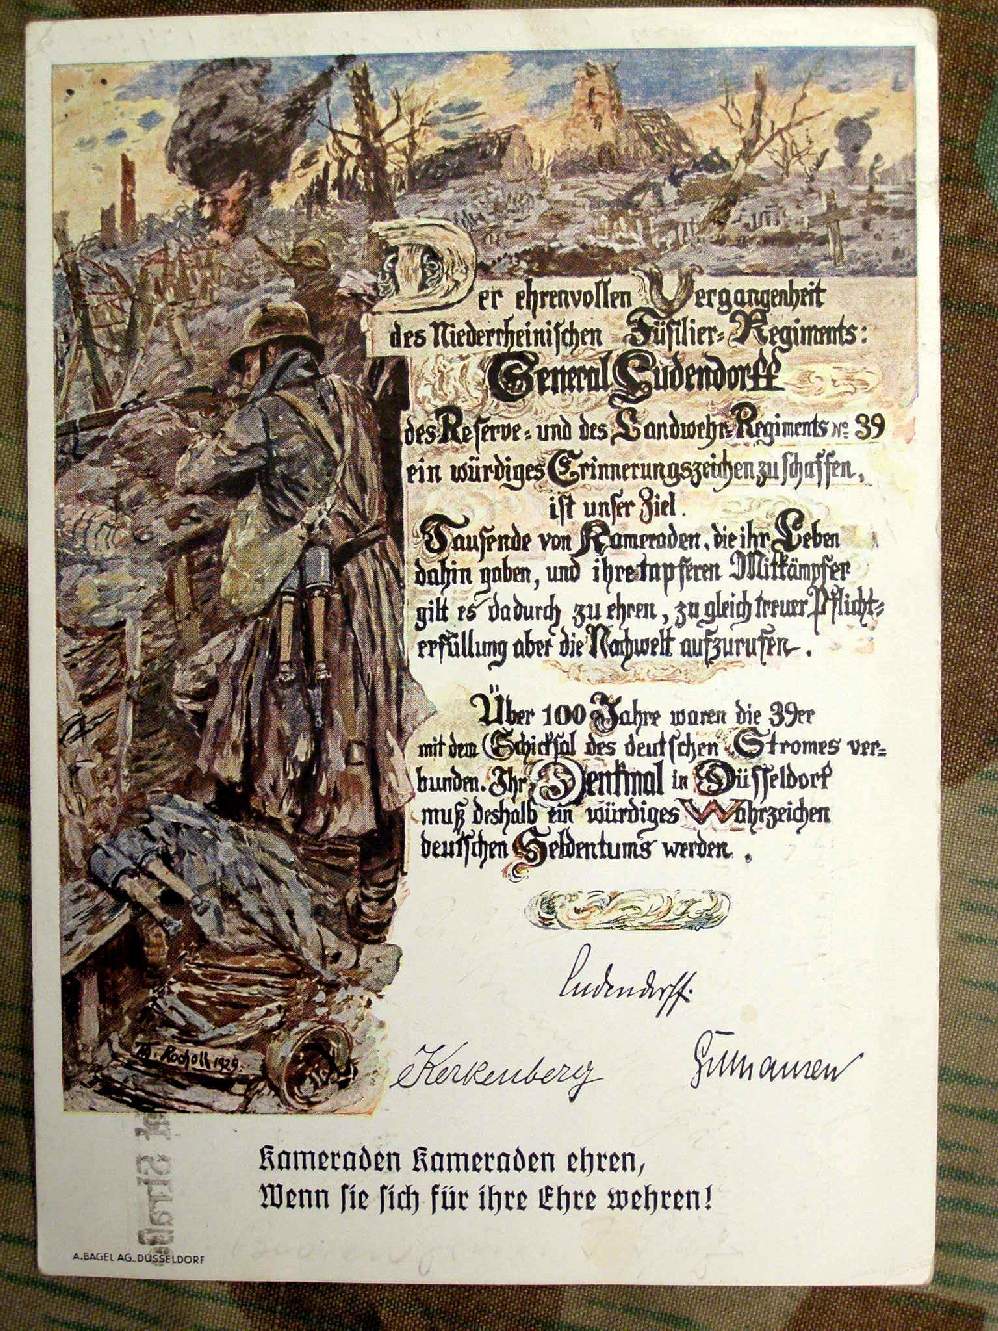 Der ehrenvollen Vergangenheit
des Niederrheinischen Füsilier-Regiments:
General Ludendorff
des Reserve- und des Landwehr-Regiments No. 39
ein würdiges Erinnerungszeichen zu schaffen,
ist unser Ziel.
Tausende von Kameraden, die ihr Leben
dahin gaben, und ihre tapferen Mitkämpfer
gilt es dadurch zu ehren, zugleich treuer Pflicht-
erfüllung aber die Nachwelt aufzurufen.
Über 100 Jahre waren die 39er
mit dem Schicksal des deutschen Stromes ver-
bunden. Ihr Denkmal in Düsseldorf
muß deshalb ein würdiges Wahrzeichen
deutschen Heldentums werden.
Ludendorff.
Kerkenberg
Th. Rocholl 1929.
Kameraden Kameraden ehren,
Wenn sie sich für ihre Ehre wehren!
A. BAGEL AG. DÜSSELDORF